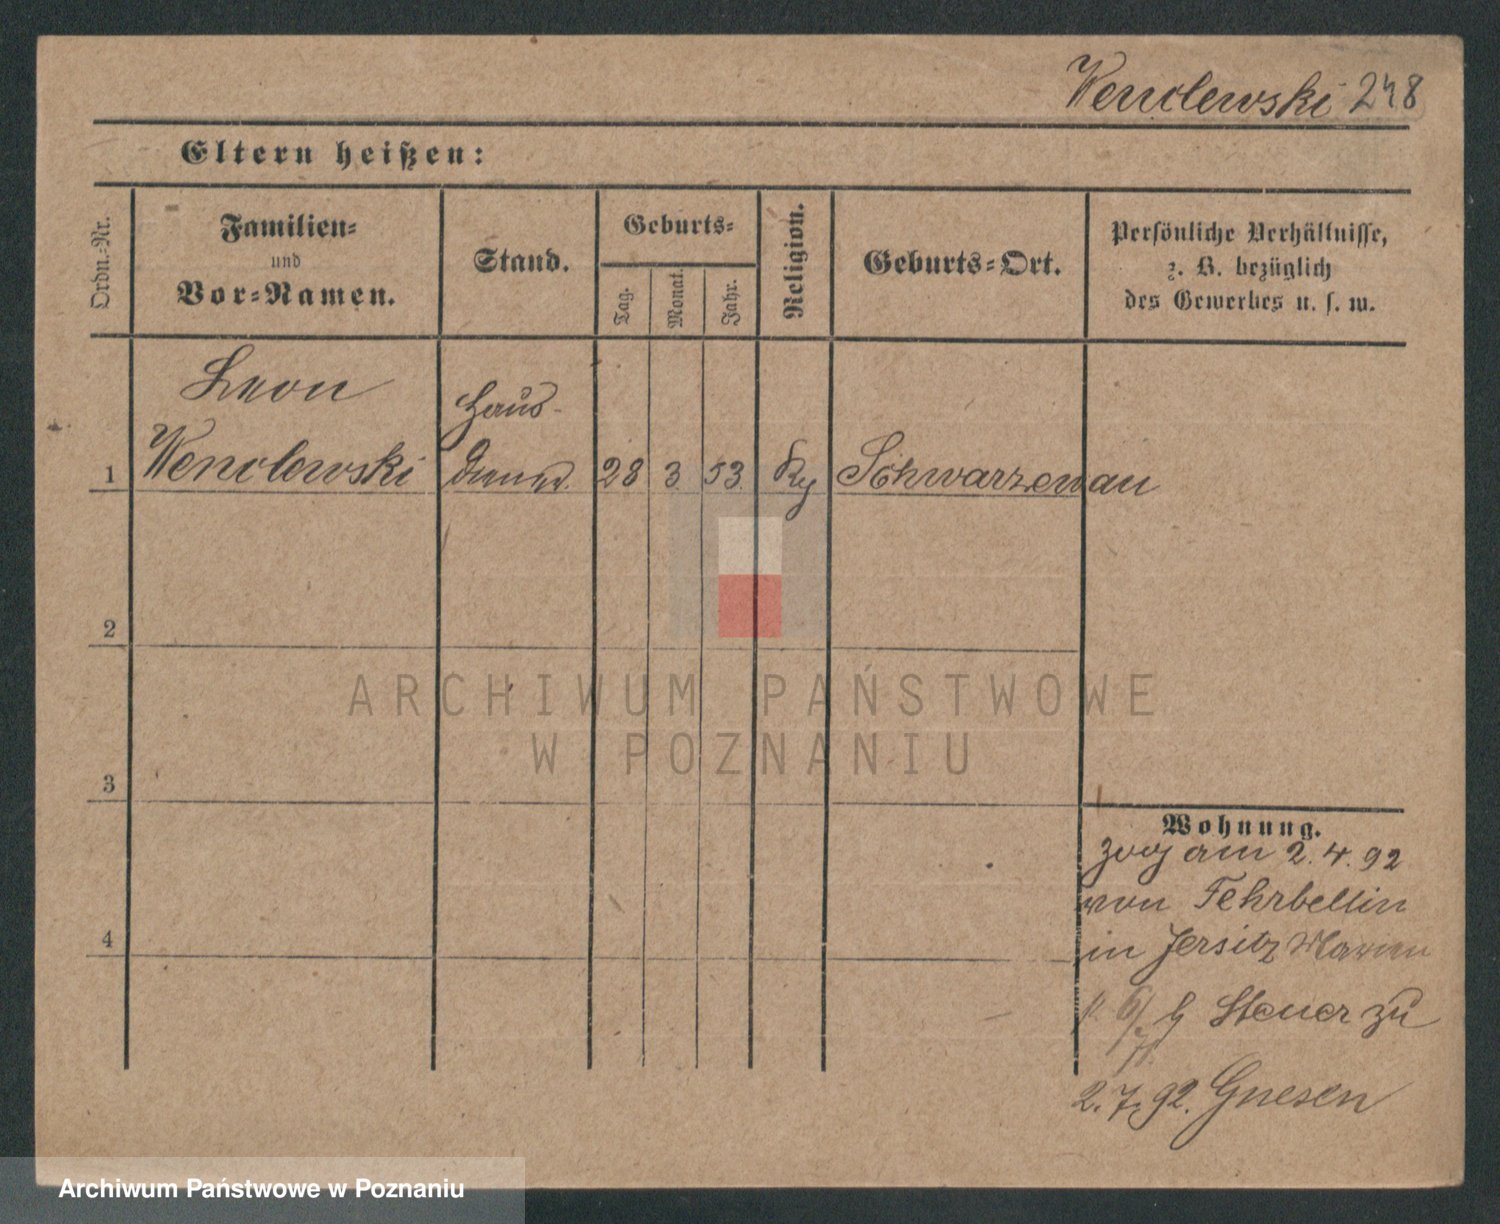 Wendlewski 248
Eltern heißen:
Ordn.-Nr.
Familien-
und
Vor-Namen.
Stand.
Geburts-
Tag.
Monat.
Jahr.
Religion.
Geburts-Ort.
Persönliche Verhältnisse,
z. B. bezüglich
des Gewerbes u. s. w.
Leon
Haus-
1 Wendlewski diener 28 3 53 Schwarzenau
2
ARCHIWUM PAŃSTWOWE
W POZNANIU
3
Wohnung.
zog am 2.4.92
von Fehrbellin
4
in Jersitz
Steuer zu
2.7.92. Gnesen
Archiwum Państwowe w Poznaniu